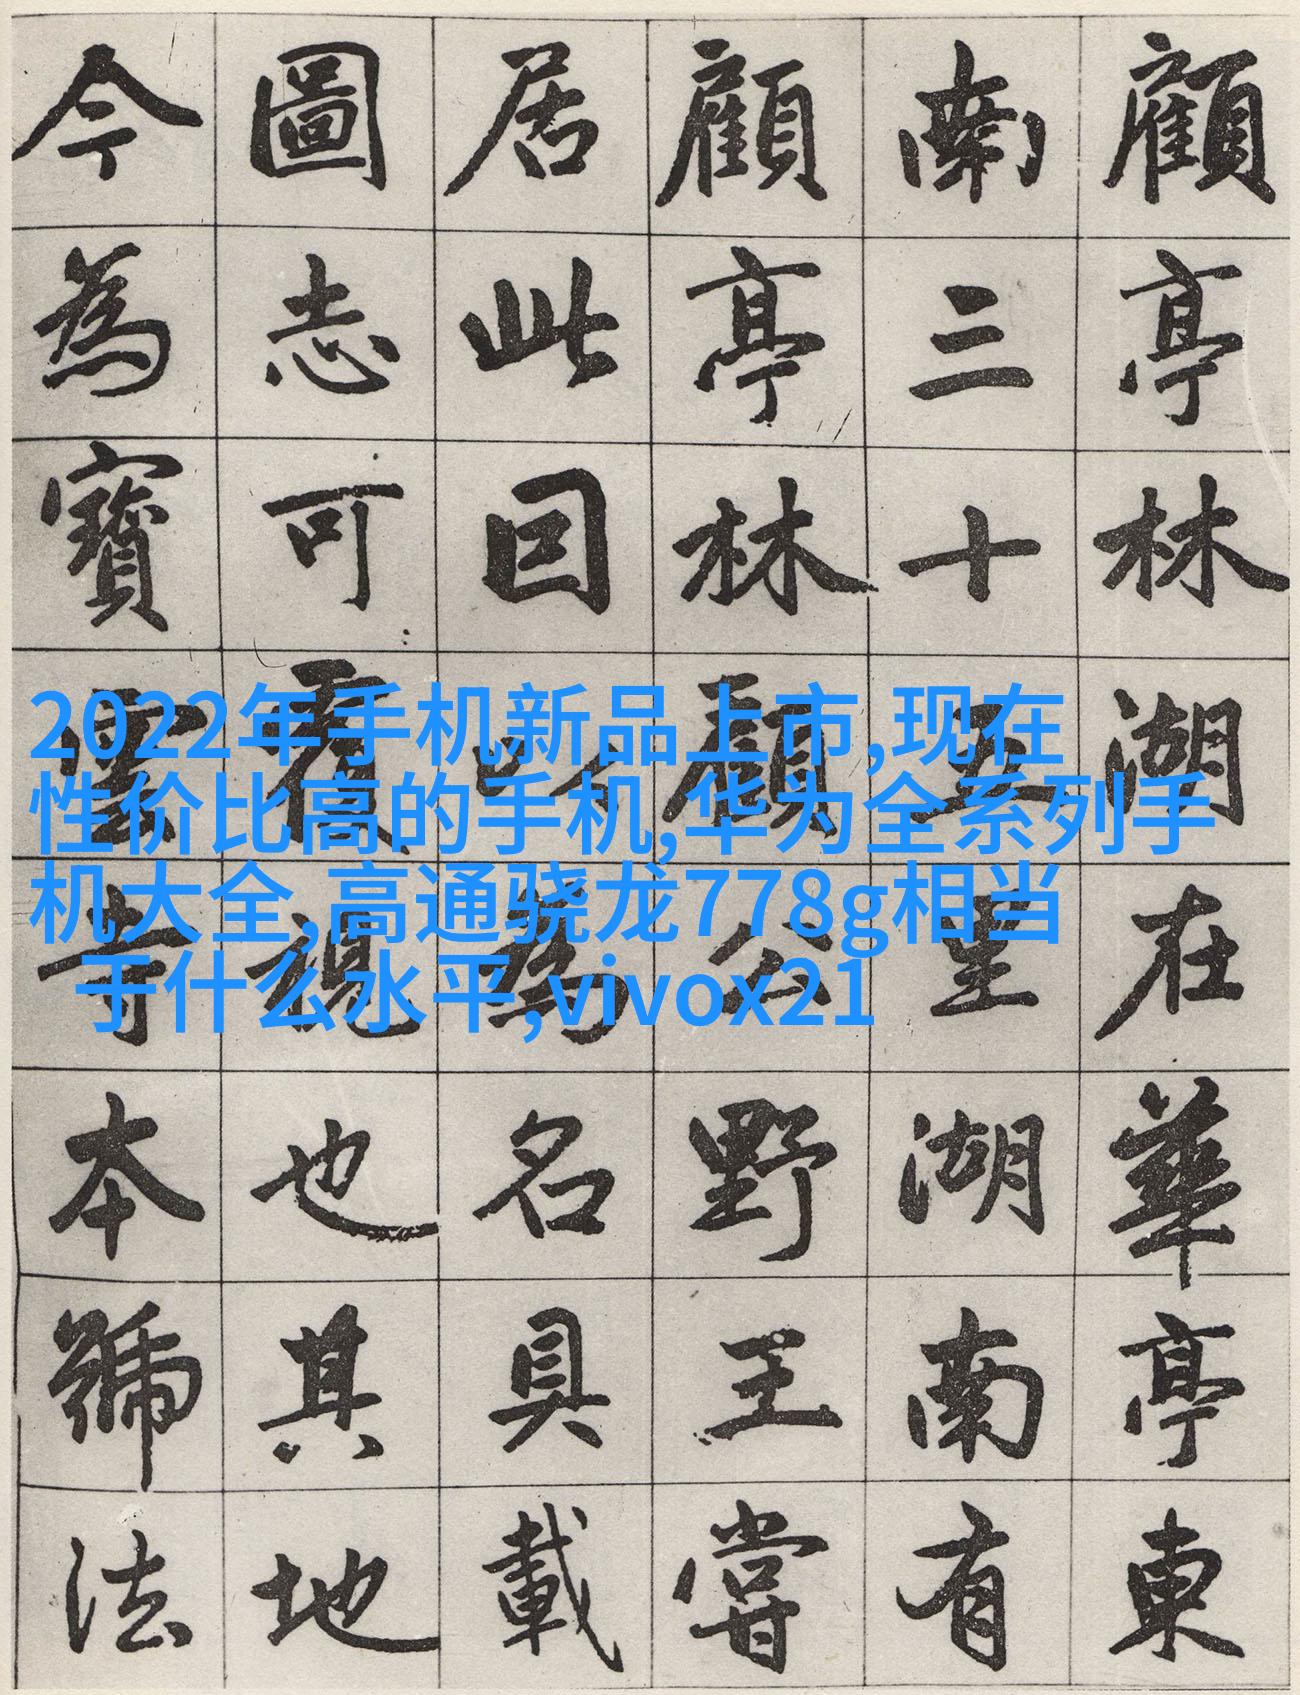 顧亭林湖在華亭東
南三十五里湖南有
顧亭林顧公野王嘗
居此因以為名具載
圖志可覆視也其地
今為寶雲寺本號法
2022年手机新品上市,现在
性价比高的手机,华为全系列手
机大全,高通骁龙778g相当
于什么水平,vivox21